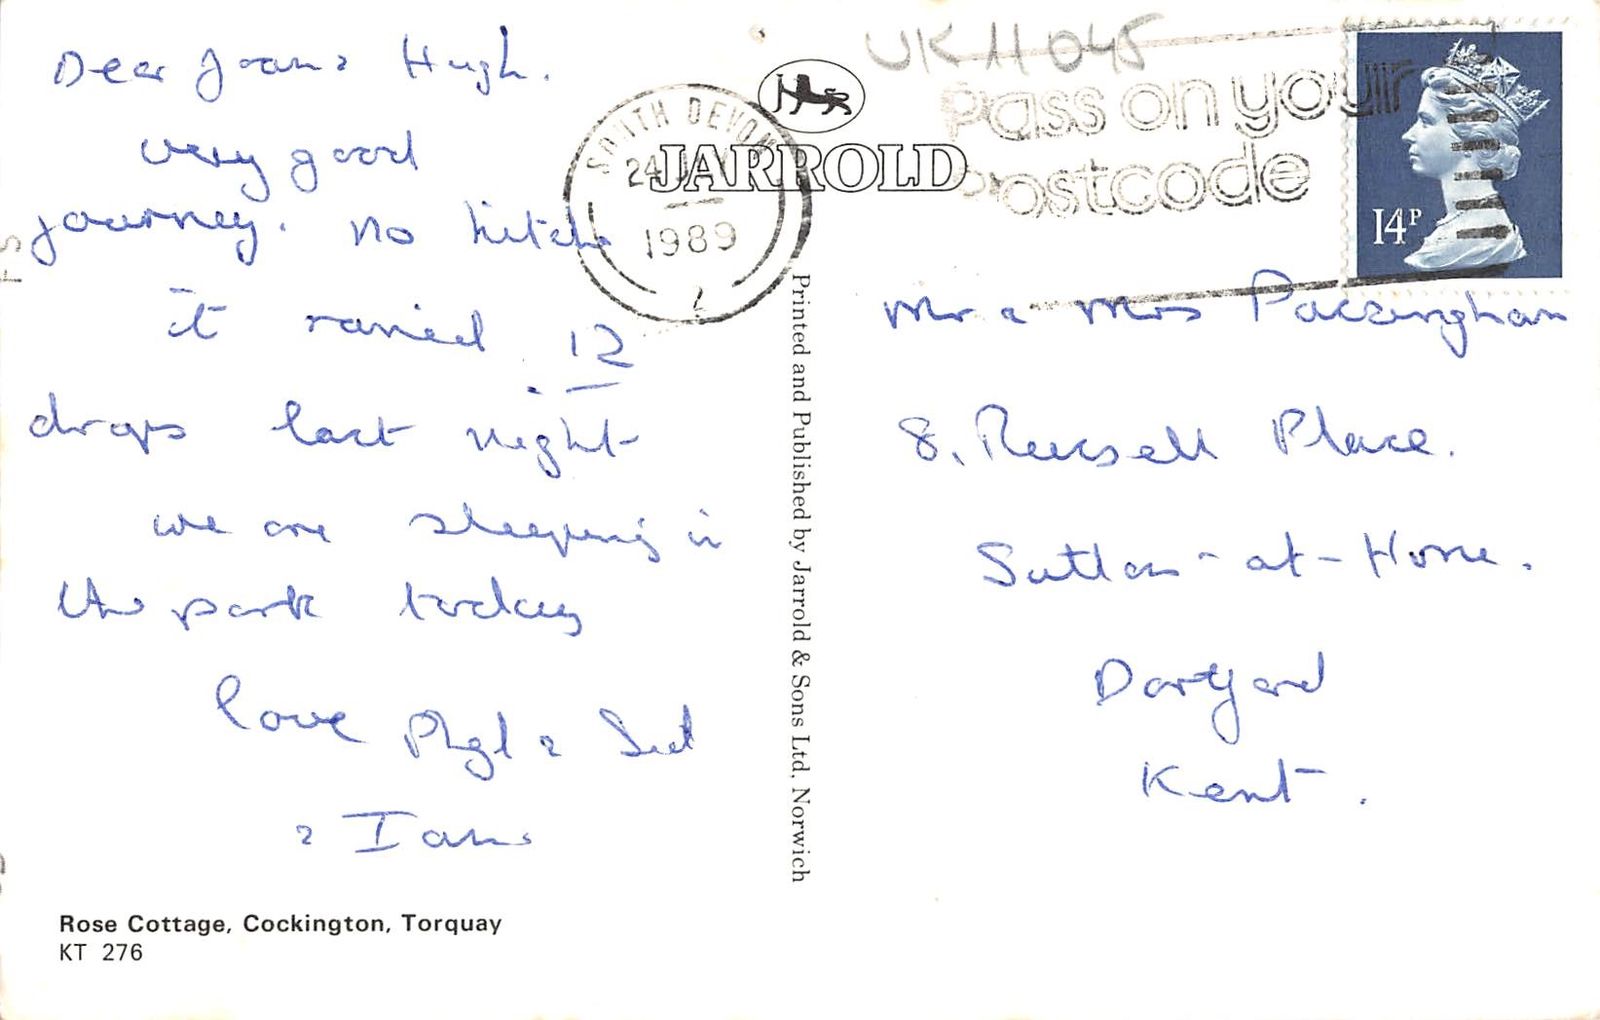 UK 11 045
Pass on your
postcode
SOUTH DEVON
24 
1989
JARROLD
14P
Dear Joan & Hugh.
very good
journey. no hitchs
it rained 12
drops last night
we are sleeping in
the park today
love Phyl & Sid
& Ian
Mr & Mrs Packingham
8, Russell Place.
Sutton-at-Hone.
Dartford
Kent.
Printed and Published by Jarrold & Sons Ltd, Norwich
Rose Cottage, Cockington, Torquay
KT 276